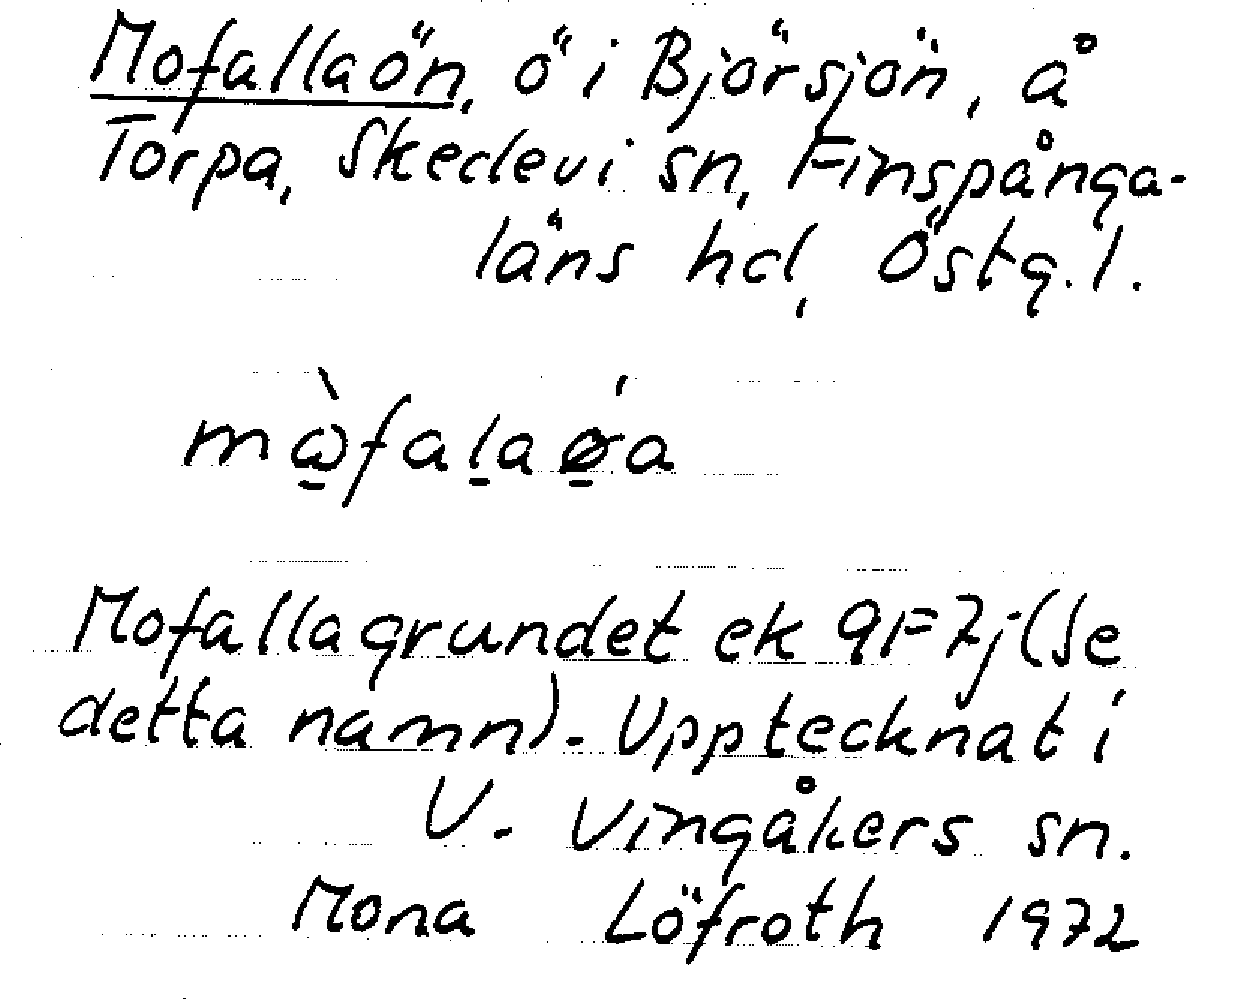 Mofallaön, ö i Björsjön, å
Torpa, Skedevi sn, Finspånga-
läns hd, Östg. l.
Mofallagrundet ek 9F7j (Se
detta namn). Upptecknat i
V. Vingåkers sn.
Mona Löfroth 1972